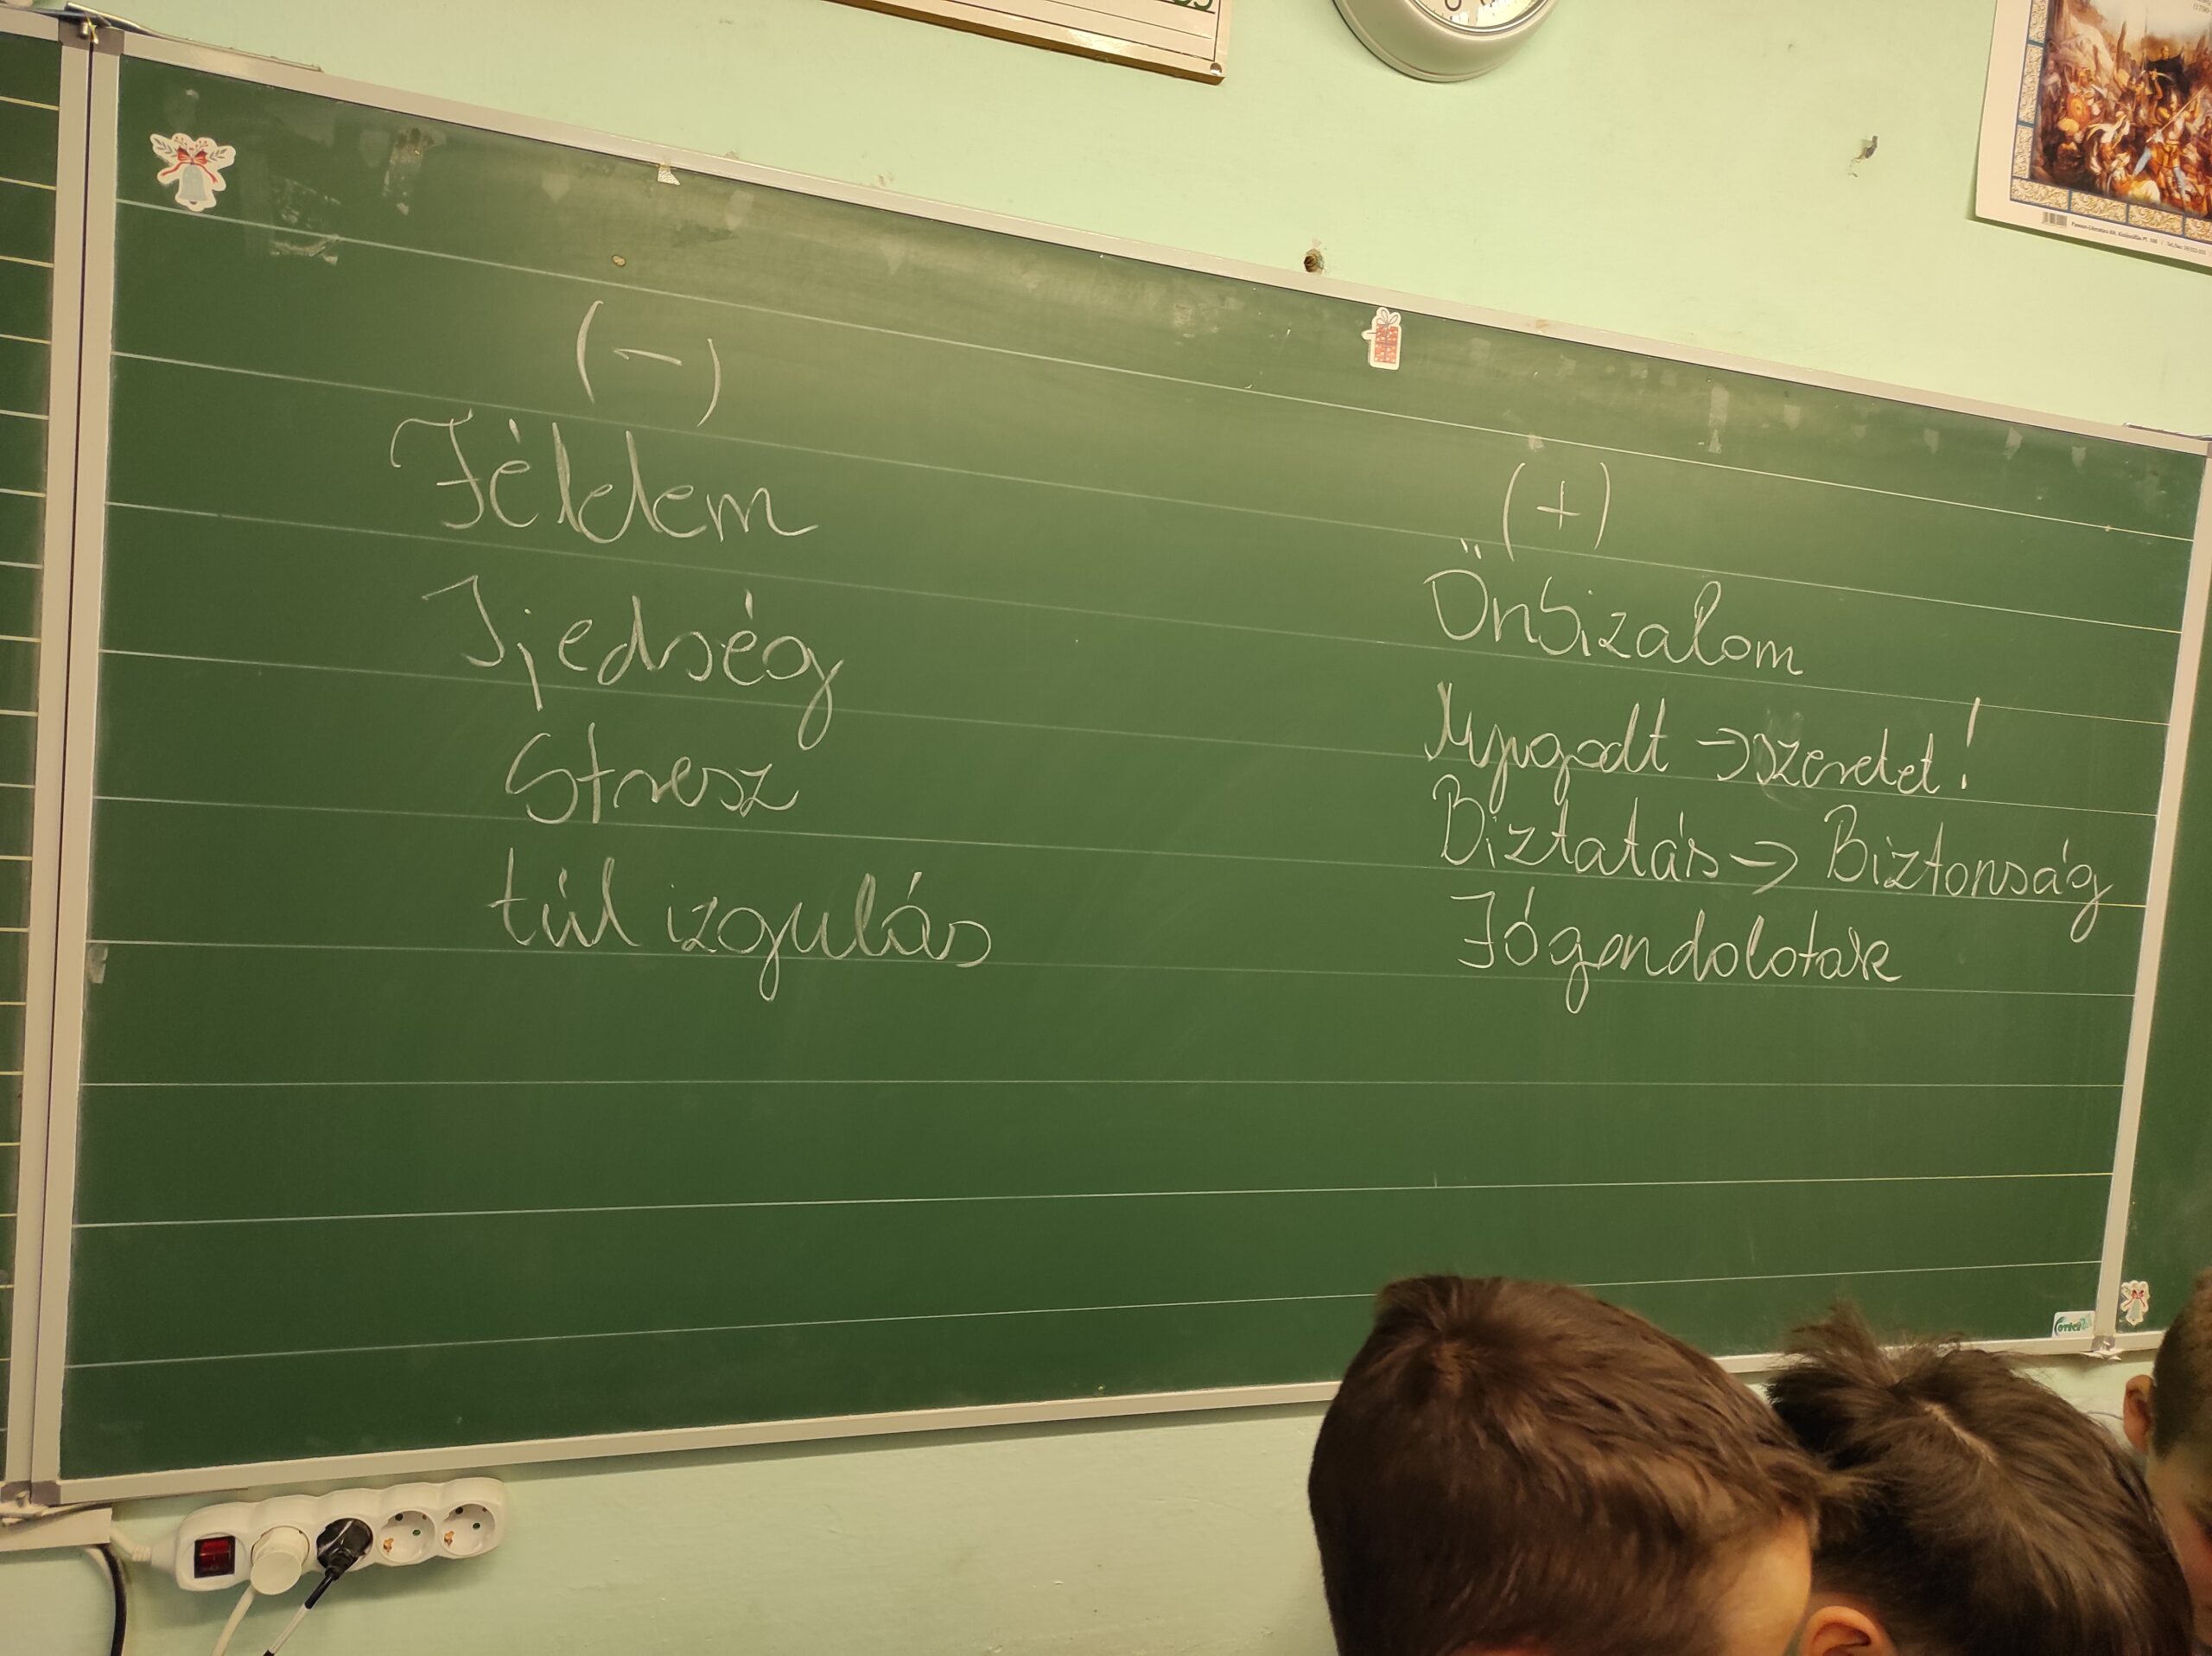 (-)
Félelem
Ijedség
Stressz
túl izgulás
(+)
Önbizalom
Nyugodt → szeretet!
Biztatás → Biztonság
Jó gondolatok